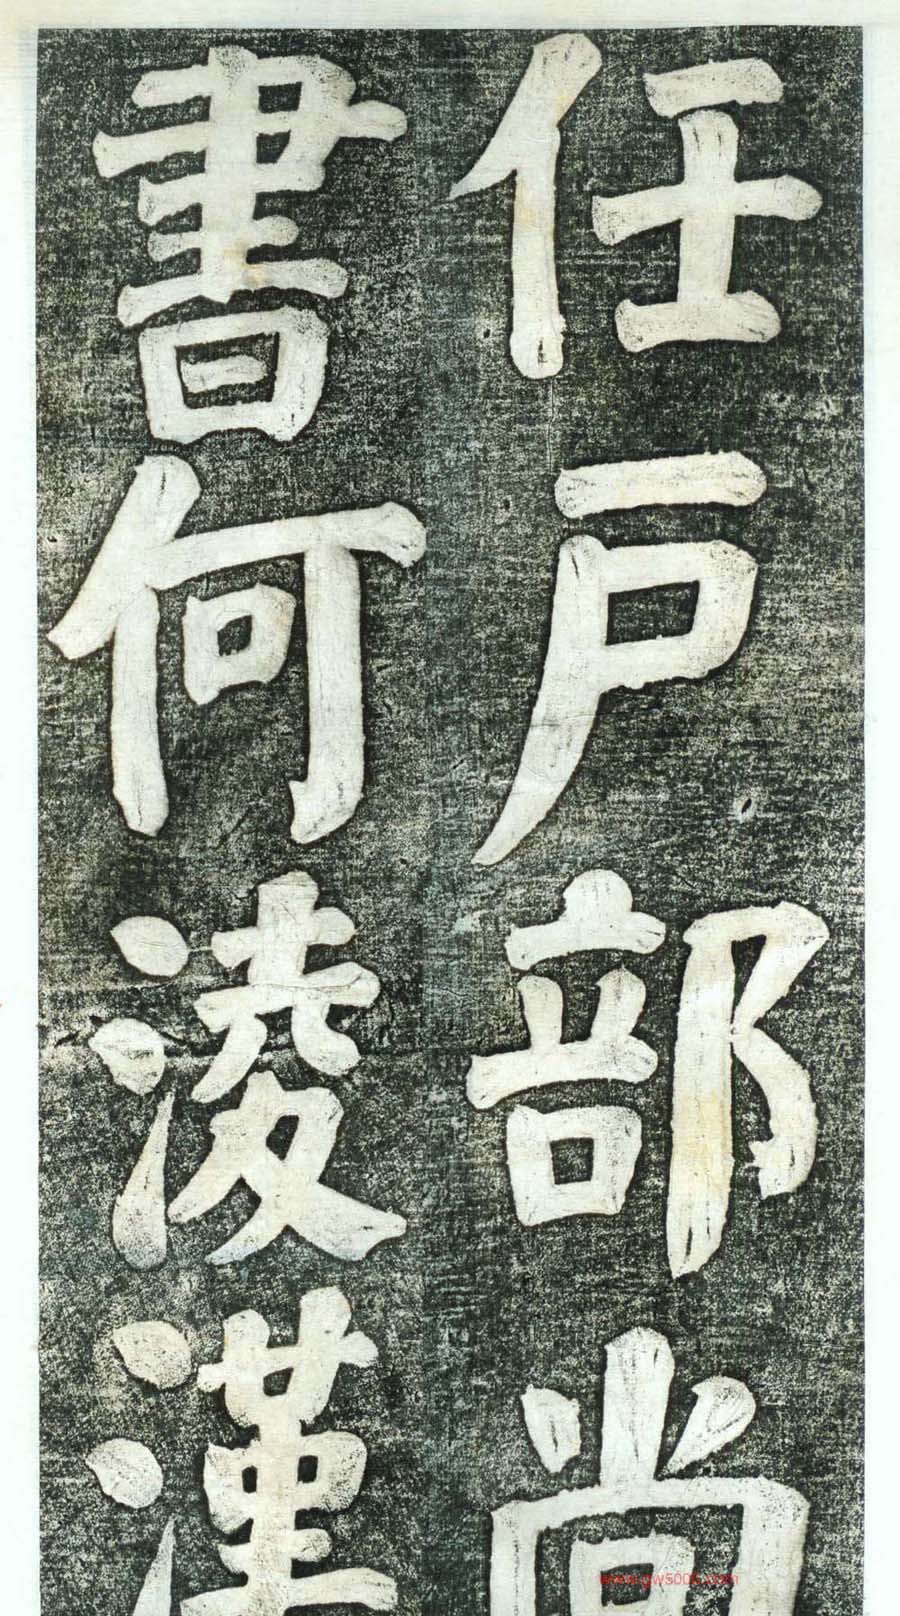 任戶部尚
書何淩漢
www.gw5000.com